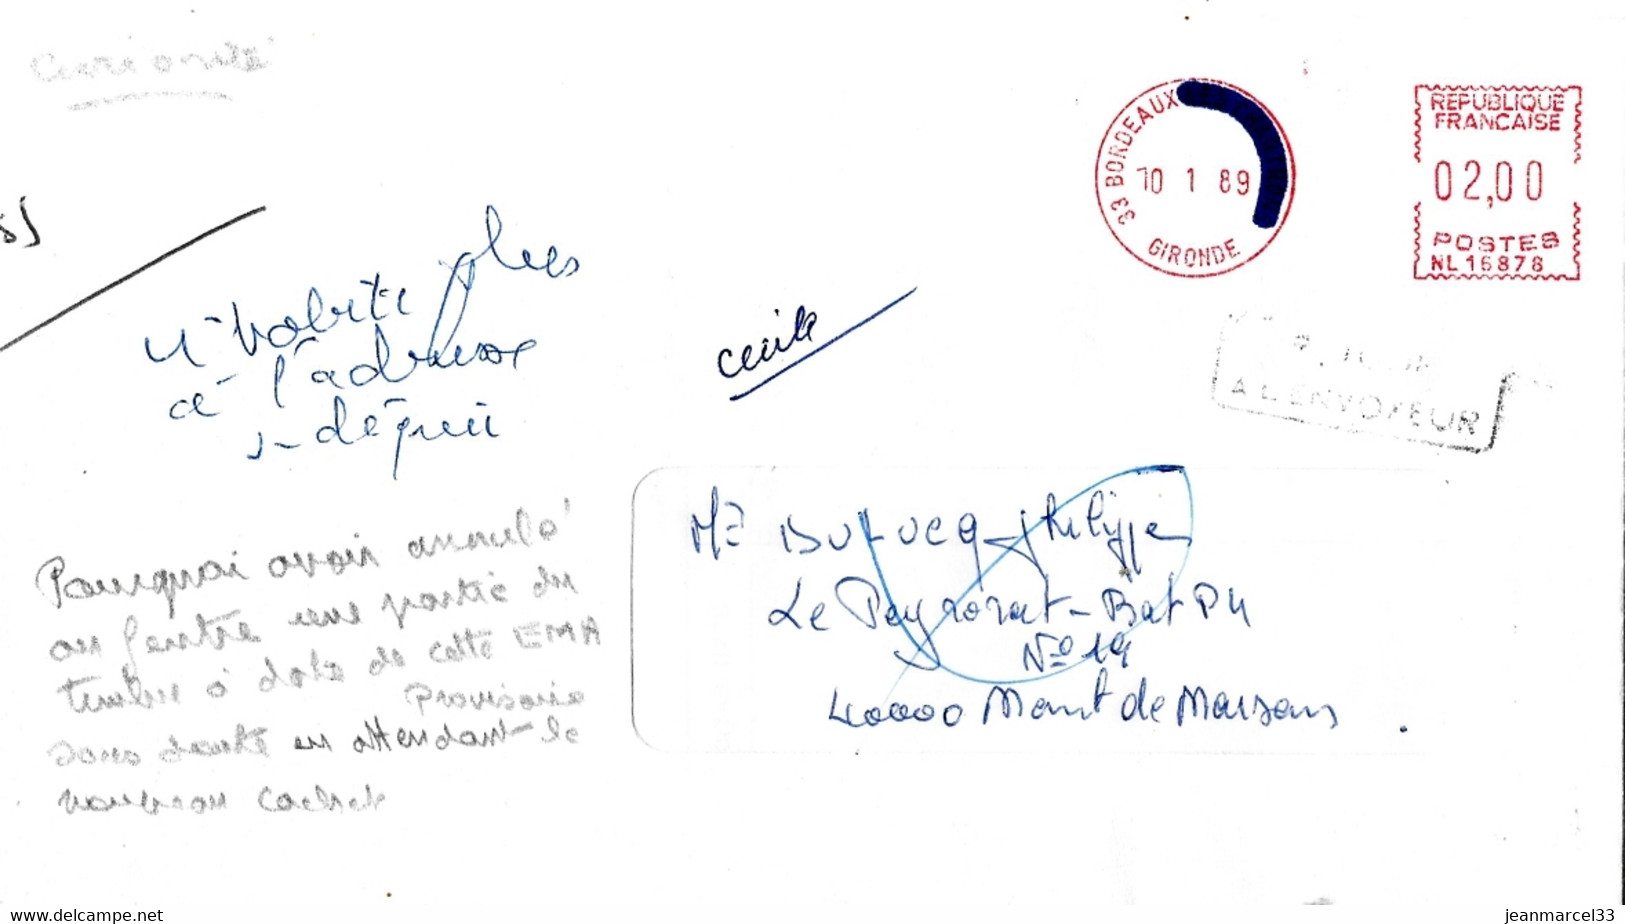 Curiosité
33 BORDEAUX
10 1 89
GIRONDE
REPUBLIQUE
FRANCAISE
02,00
POSTES
NL 16878
N'habite plus
à l'adresse
indiquée
Cecile
A L'ENVOYEUR
Philippe
Le Peyrouat - Bat P4
N° 19
40000 Mont de Marsan.
Pourquoi avoir annulé
au feutre une partie du
timbre à date de cette EMA
Provisoire
sans doute en attendant le
nouveau cachet
www.delcampe.net
jeanmarcel33